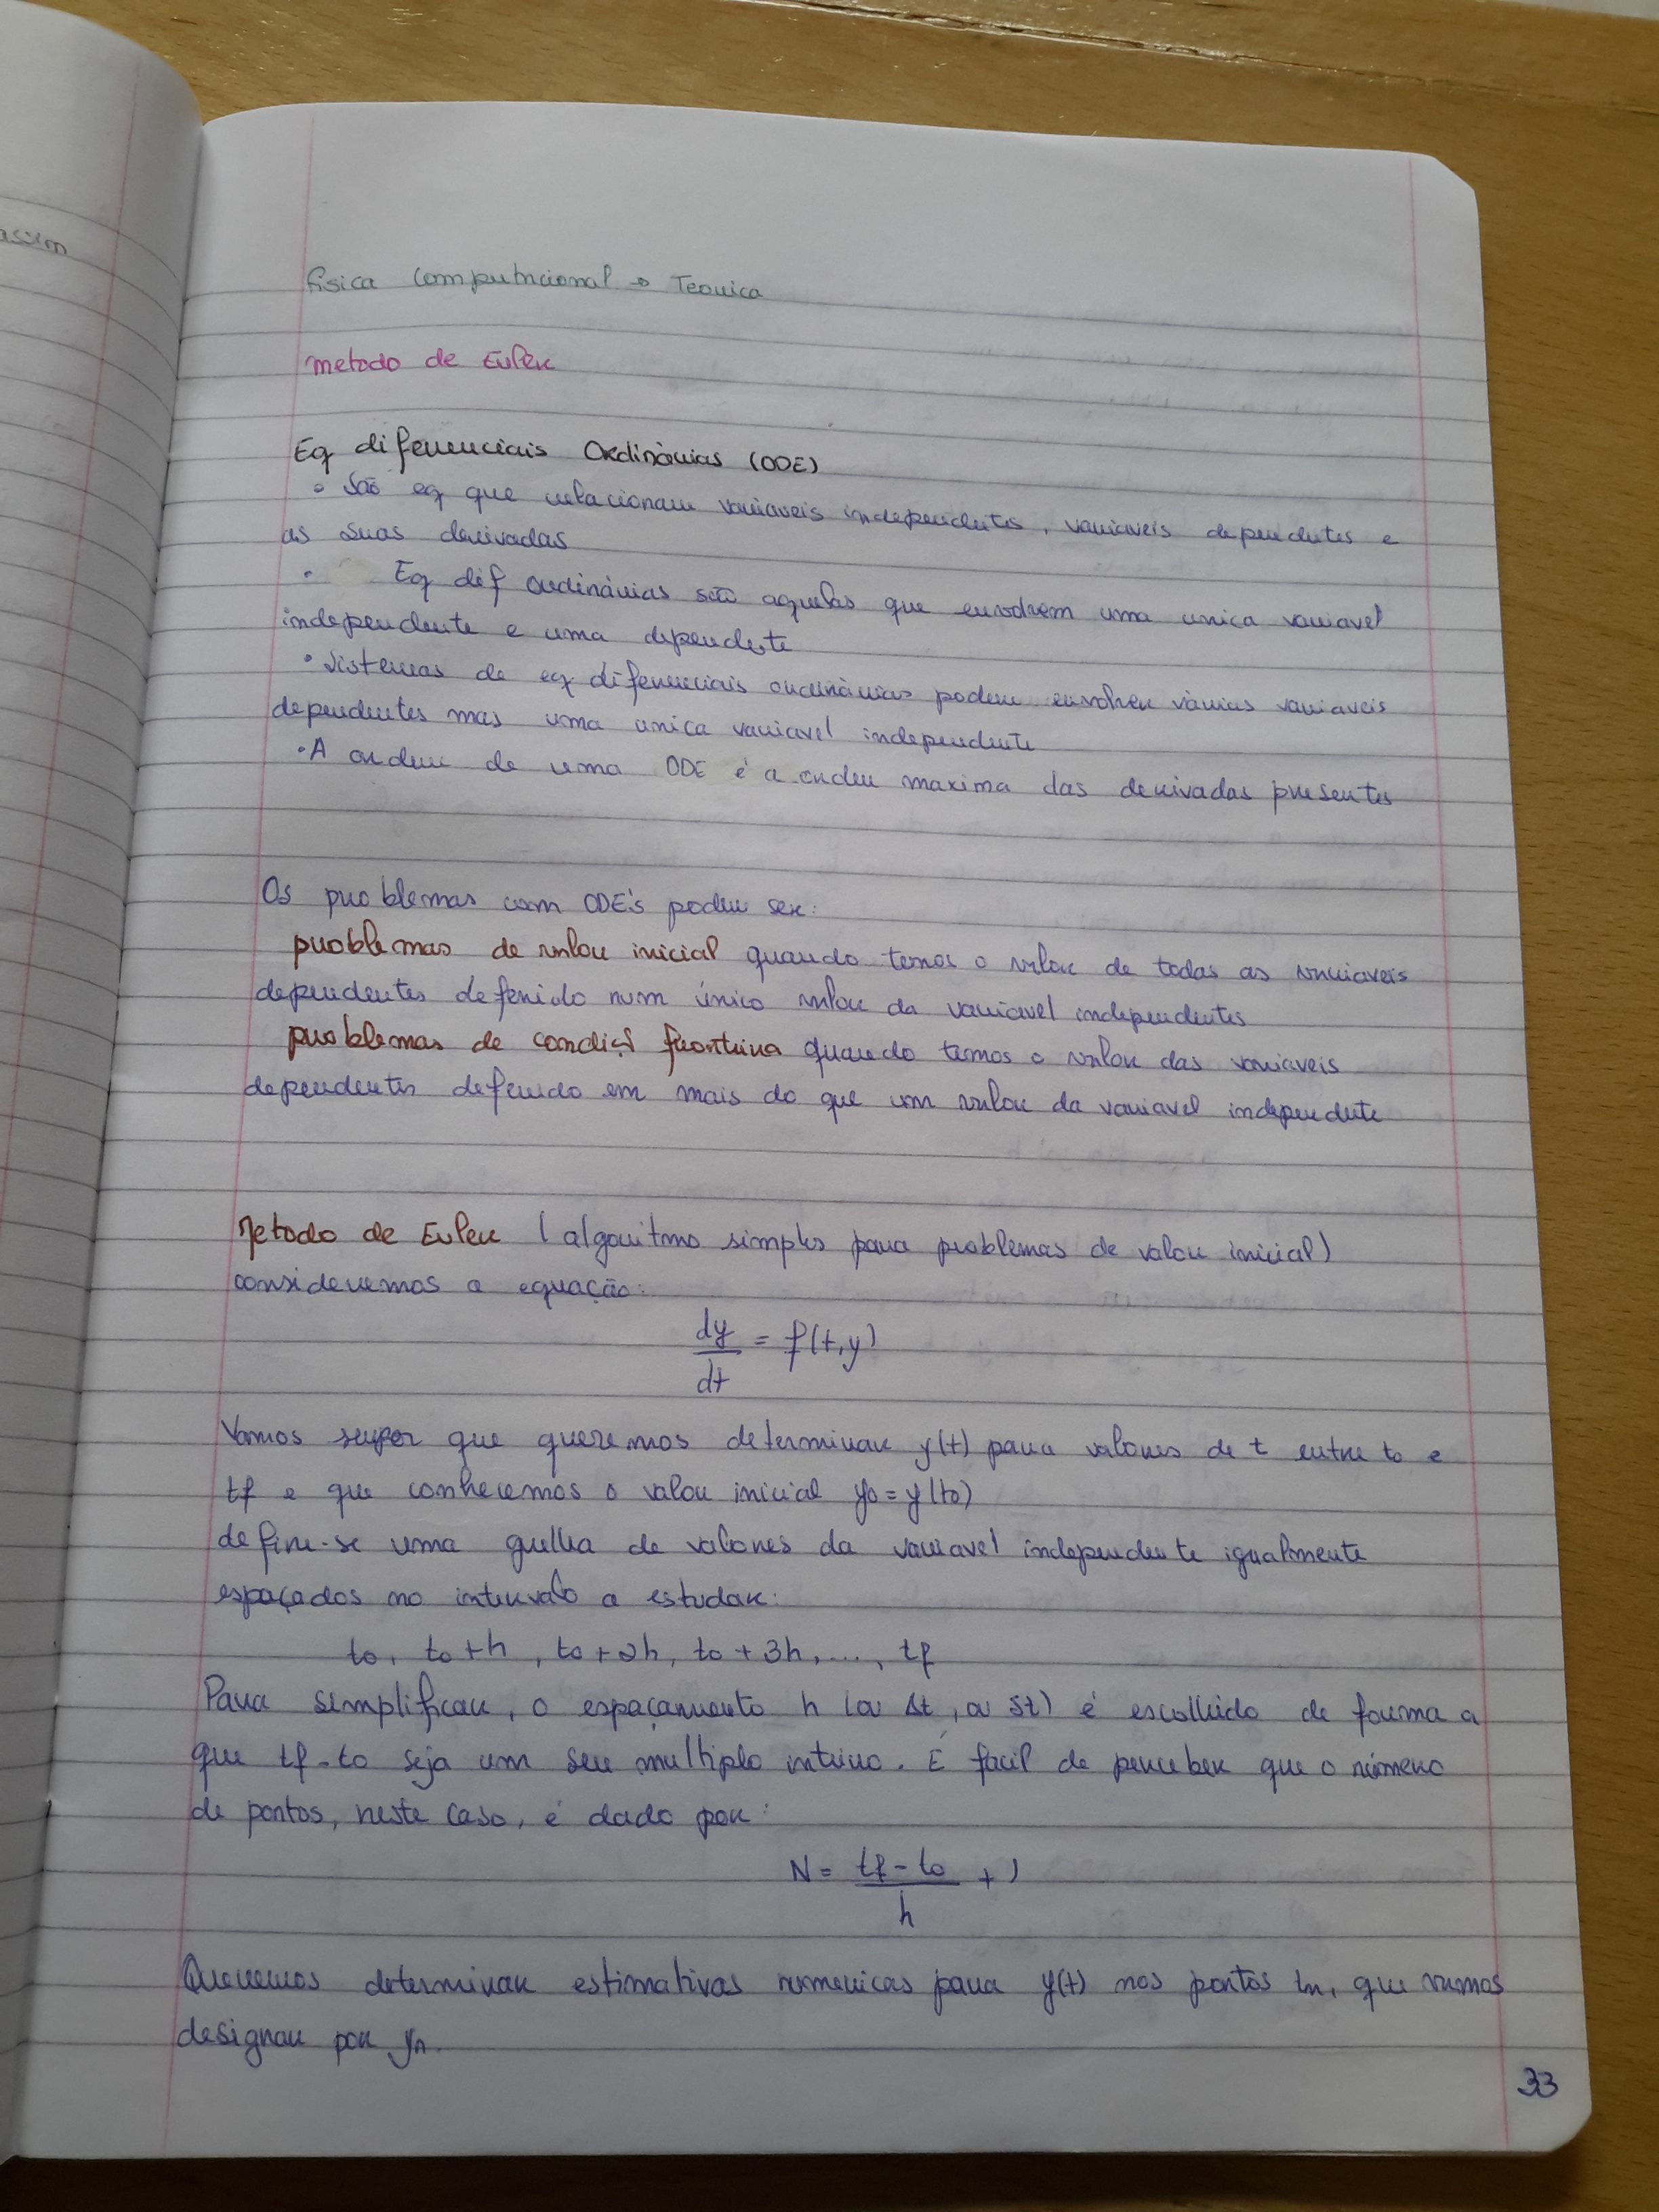 assim
Fisica Computacional → Teorica
metodo de Euler
Eq diferenciais Ordinárias (ODE)
• São eq que relacionam variaveis independentes, variaveis dependentes e
as suas derivadas
• Eq dif ordinárias são aquelas que envolvem uma unica variavel
independente e uma dependente
• Sistemas de eq diferenciais ordinárias podem envolver várias variaveis
dependentes mas uma unica variavel independente
• A ordem de uma ODE é a ordem maxima das derivadas presentes
Os problemas com ODE's podem ser:
problemas de valor inicial quando temos o valor de todas as variaveis
dependentes defenido num único valor da variavel independentes
problemas de condiç fronteira quando temos o valor das variaveis
dependentes defenido em mais do que um valor da variavel independente
Metodo de Euler (algoritmo simples para problemas de valor inicial)
consideremos a equação:
dy/dt = f(t,y)
Vamos supor que queremos determinar y(t) para valores de t entre t0 e
tf e que conhecemos o valor inicial y0 = y(t0)
define-se uma grelha de valores da variavel independente igualmente
espaçados no intervalo a estudar:
t0, t0+h, t0+2h, t0+3h, ..., tf
Para simplificar, o espaçamento h (ou Δt, ou δt) é escolhido de forma a
que tf-t0 seja um seu multiplo inteiro. É facil de perceber que o número
de pontos, neste caso, é dado por:
N = tf - t0 / h + 1
Queremos determinar estimativas numericas para y(t) nos pontos tn, que vamos
designar por yn.
33